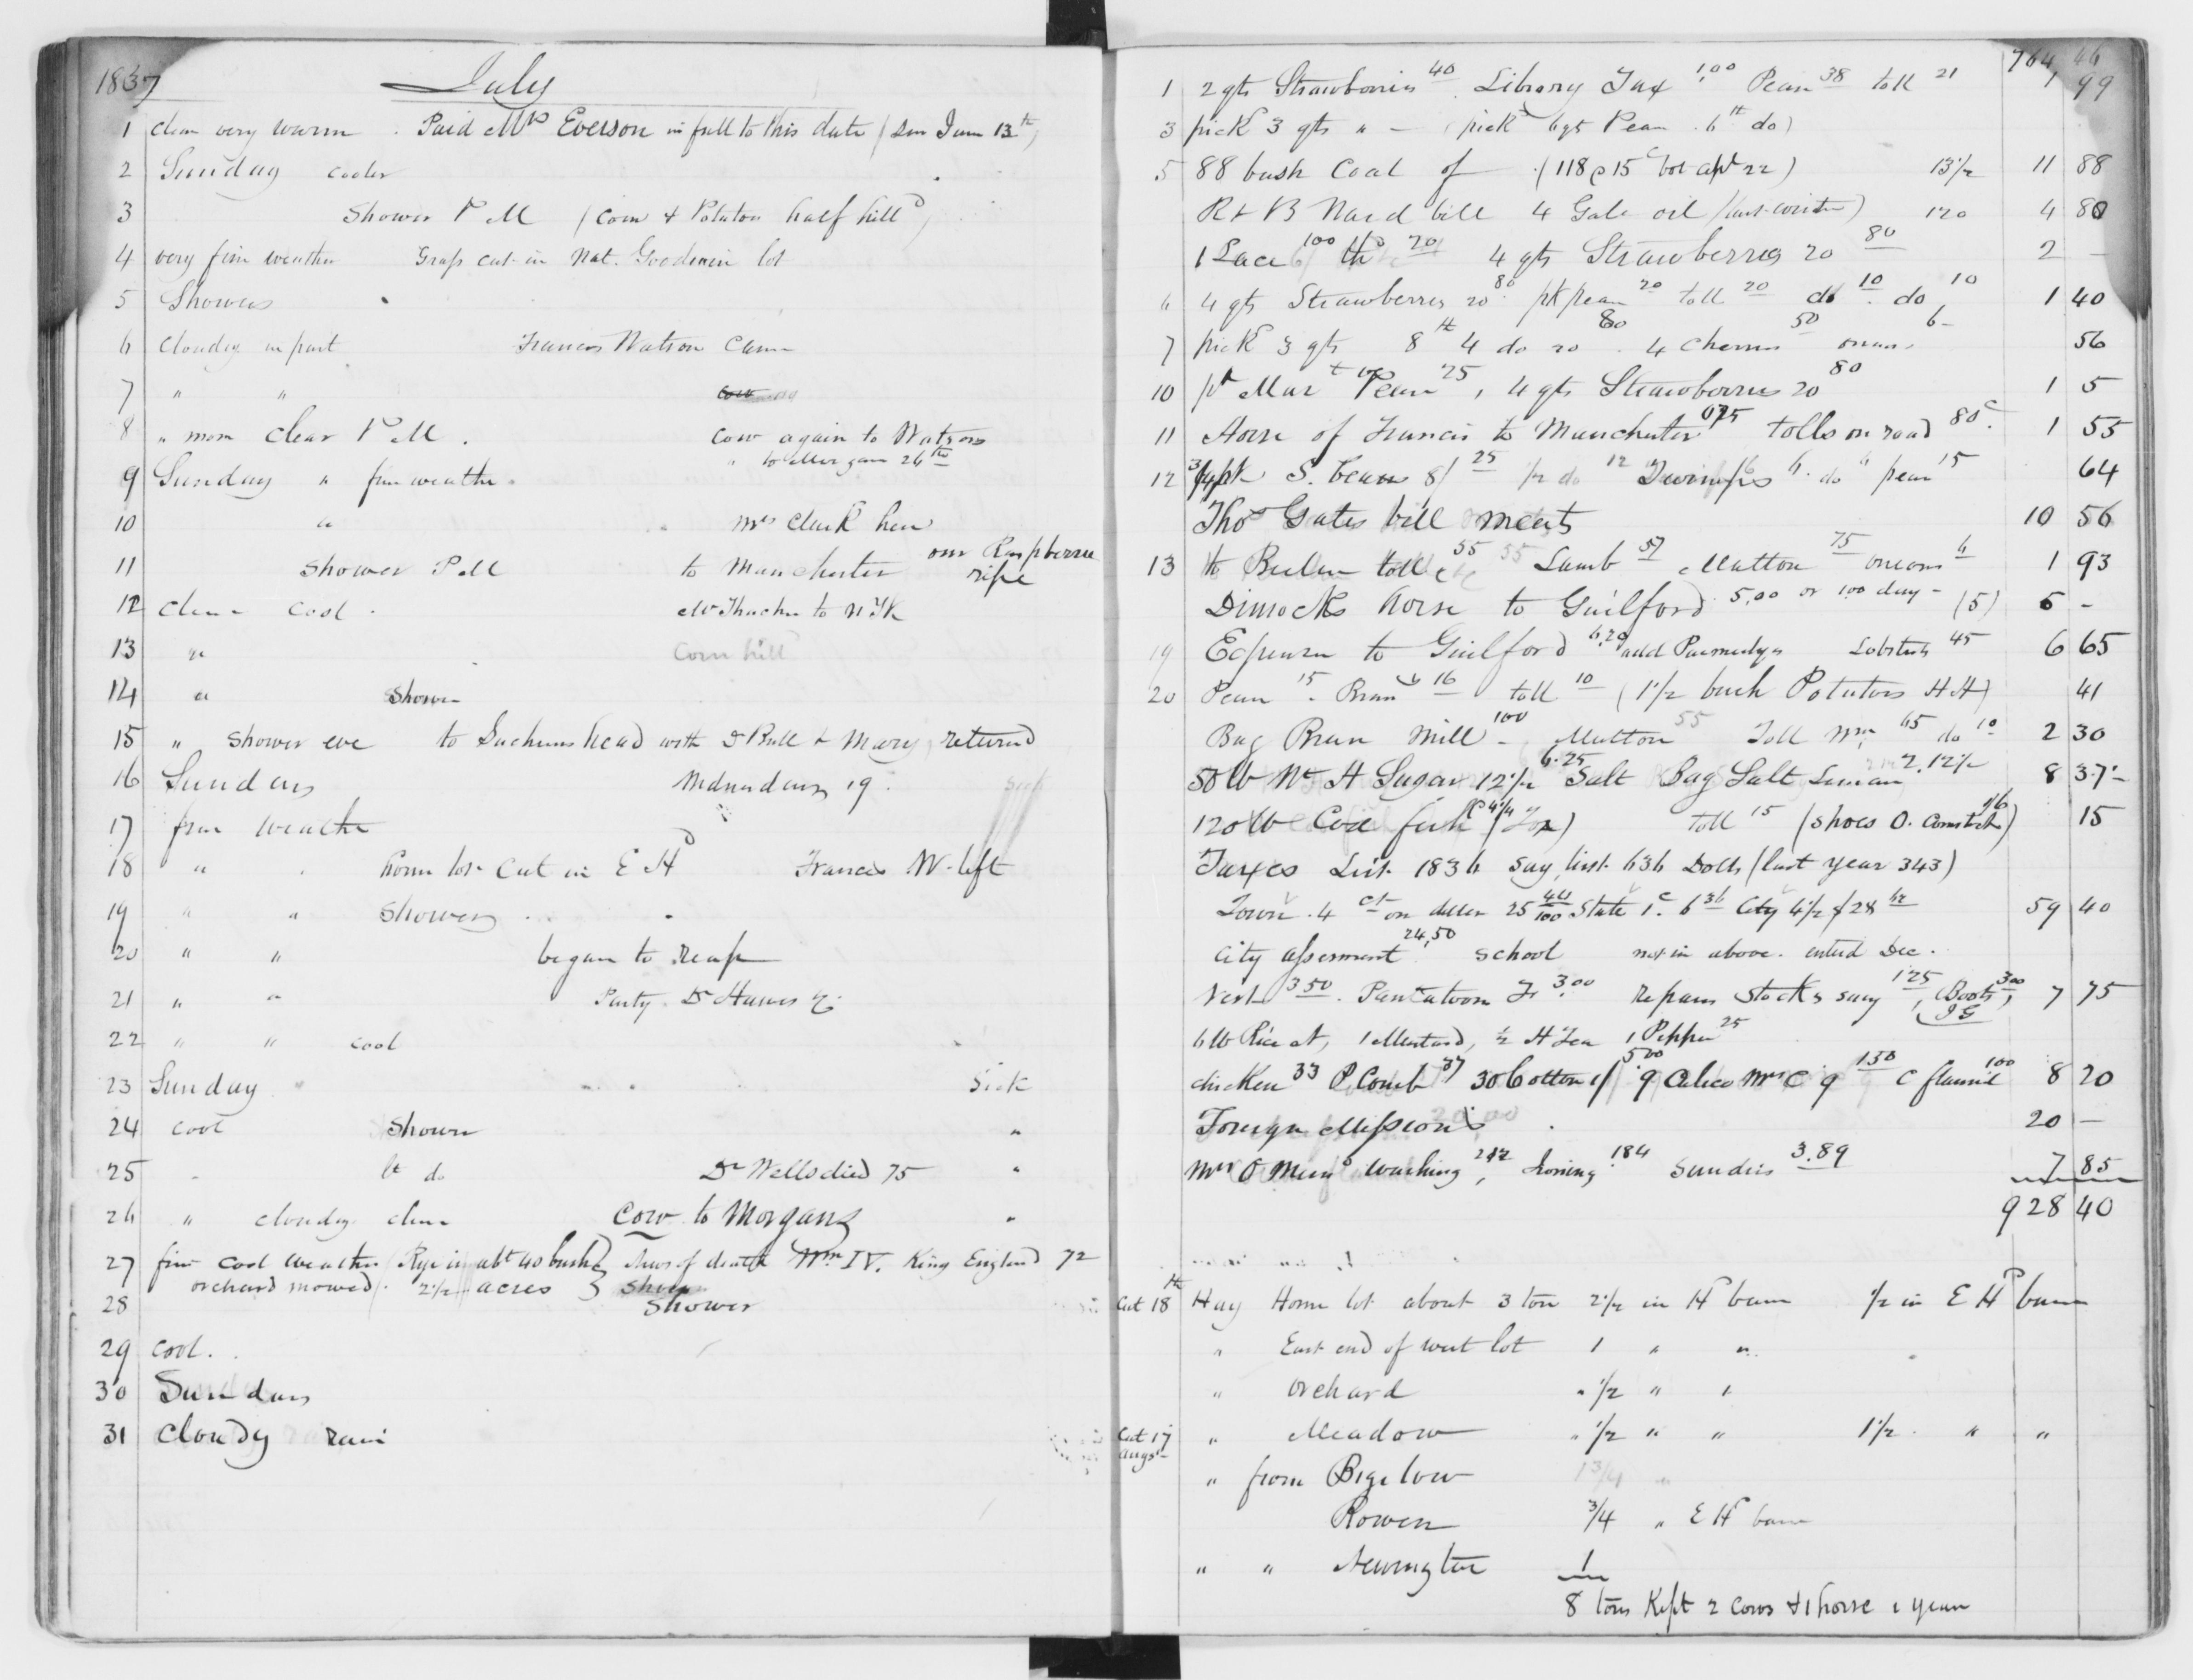 1837 July
1 clear very warm . Paid Mrs Everson in full to this date (see June 13th)
2 Sunday cooler
3 Shower P M (Corn & Potatoes half hilld)
4 very fine weather Grass cut in Nat. Goodwin lot
5 Showers
6 Cloudy in part Francis Watson came
7 " "
8 " morn Clear P M . Cow again to Watsons
" to Morgans 26th
9 Sunday " fine weather
10 " Mrs Clark here
11 Shower P M to Manchester our Raspberries ripe
12 Clear Cool . Mr Thacher to N Yk
13 " Corn hill
14 " Shower
15 " Shower eve to Sachems head with D Bull & Mary, returnd
16 Sunday Wednesday 19.
17 fine weather
18 " home lot cut in E Hd Francis W. left
19 " " Showery
20 " " began to reap
21 " " Party Dr Hawes
22 " " cool
23 Sunday Sick
24 cool Shower "
25 lt do Dr Wells died 75 "
26 " cloudy clear Cow to Morgans "
27 fine cool weather (Rye in abt 40 bush News of death Wm IV. King England 72
orchard mowed . 2 1/2 acres
28 Shower
29 cool.
30 Sunday
31 Cloudy rain
764 46
1 2 qts Strawberries 40 Library Tax 1,00 Peas 38 toll 21 1 99
3 pick 3 qts " - (pickd 6 qts Peas 6th do)
5 88 bush Coal of (118 @ 15c bot apl 22) 13 1/2 11 88
R & B Ward bill 4 Gals oil (last winter) 120 4 80
1 Lace 100 20 4 qts Strawberries 20 80 2 -
6 4 qts Strawberries 20 80 pk peas 20 toll 20 do 10 do 10 1 40
7 pick 3 qts 8th 4 do 20 80 4 Cherries 50 onions 6 56
10 Peas 25, 4 qts Strawberries 20 80 1 5
11 Horse of Francis to Manchester 075 tolls on road 80c. 1 55
12 3/4 pk S. beans 8/ 25 1/2 do 12 Turnips 6 do 6 peas 15 64
Thos Gates bill meats 10 56
13 toll 55 Lamb 57 Mutton 75 onions 6 1 93
Dimocks horse to Guilford 5.00 or 1.00 day - (5) 5 -
19 Expenses to Guilford 6,20 Lobsters 45 6 65
20 Peas 15 . Bran 16 toll 10 (1 1/2 bush Potatoes H H) 41
Bag Bran Mill 100 Mutton 55 Toll Wm 65 do 10 2 30
50 lb W. H Sugar 12 1/2 6.25 Salt Bag Salt 2.12 1/2 8 37 -
120 lb Cod fish @ 4 1/4 toll 15 (Shoes O. Comstock) 15
Taxes List 1836 say list 636 Dolls (last year 343)
Town . 4 ct on doller 25 44/100 State 1c. 6 36 City 4 1/2 28 62 59 40
City assessment 24,50 School not in above. enterd Dec.
Vest 3.50 . Pantaloon 3.00 repairs Stocks say 1.25 (Boots 3.00 7 75
6 lb Rice 1 Mustard, 1 Pepper 25
chicken 33 P. Comb 37 30 Cotton 1/ 5.00 9 Calico Mrs C 9 1.50 C flannel 100 8 20
Foreign Missions 20 -
Mrs washing 212, Ironing 184 Sundries 3.89 7 85
928 40
Cut 18th Hay Home lot about 3 ton 2 1/2 in Hd barn 1/2 in E Hd barn
" East end of west lot 1 " "
" Orchard 1/2 " "
Cut 17 Augst " Meadow 1/2 " " 1 1/2 " "
" from Bigelow 1 3/4 "
Rowen 3/4 " E Hd barn
" " Newington 1
8 tons Kept 2 cows & 1 horse 1 year